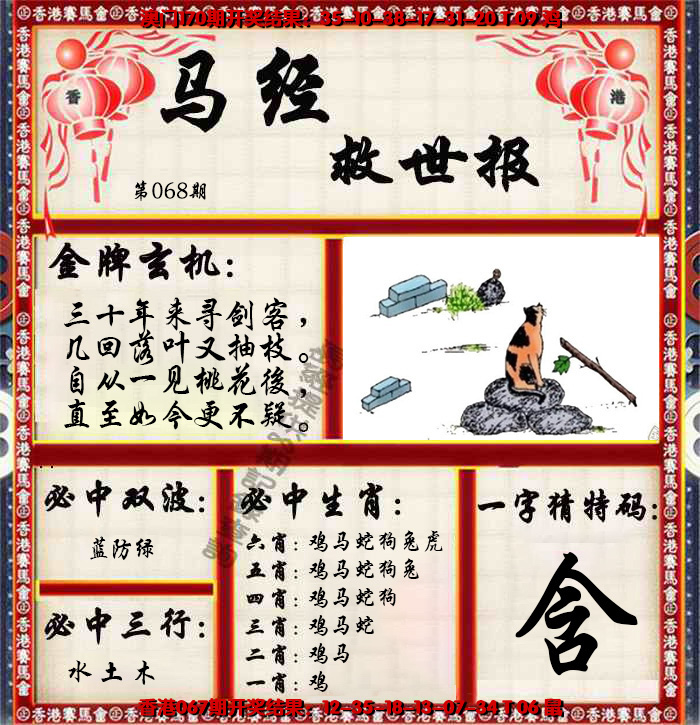 澳门170期开奖结果：35-10-38-17-31-20 T 09 鸡
香
港
马经
救世报
第068期
金牌玄机：
三十年来寻剑客，
几回落叶又抽枝。
自从一见桃花後，
直至如今更不疑。
必中双波：
蓝防绿
必中三行：
水土木
必中生肖：
六肖：鸡马蛇狗兔虎
五肖：鸡马蛇狗兔
四肖：鸡马蛇狗
三肖：鸡马蛇
二肖：鸡马
一肖：鸡
一字猜特码：
含
香港067期开奖结果：12-35-18-13-07-34 T 06 鼠
香港賽馬會